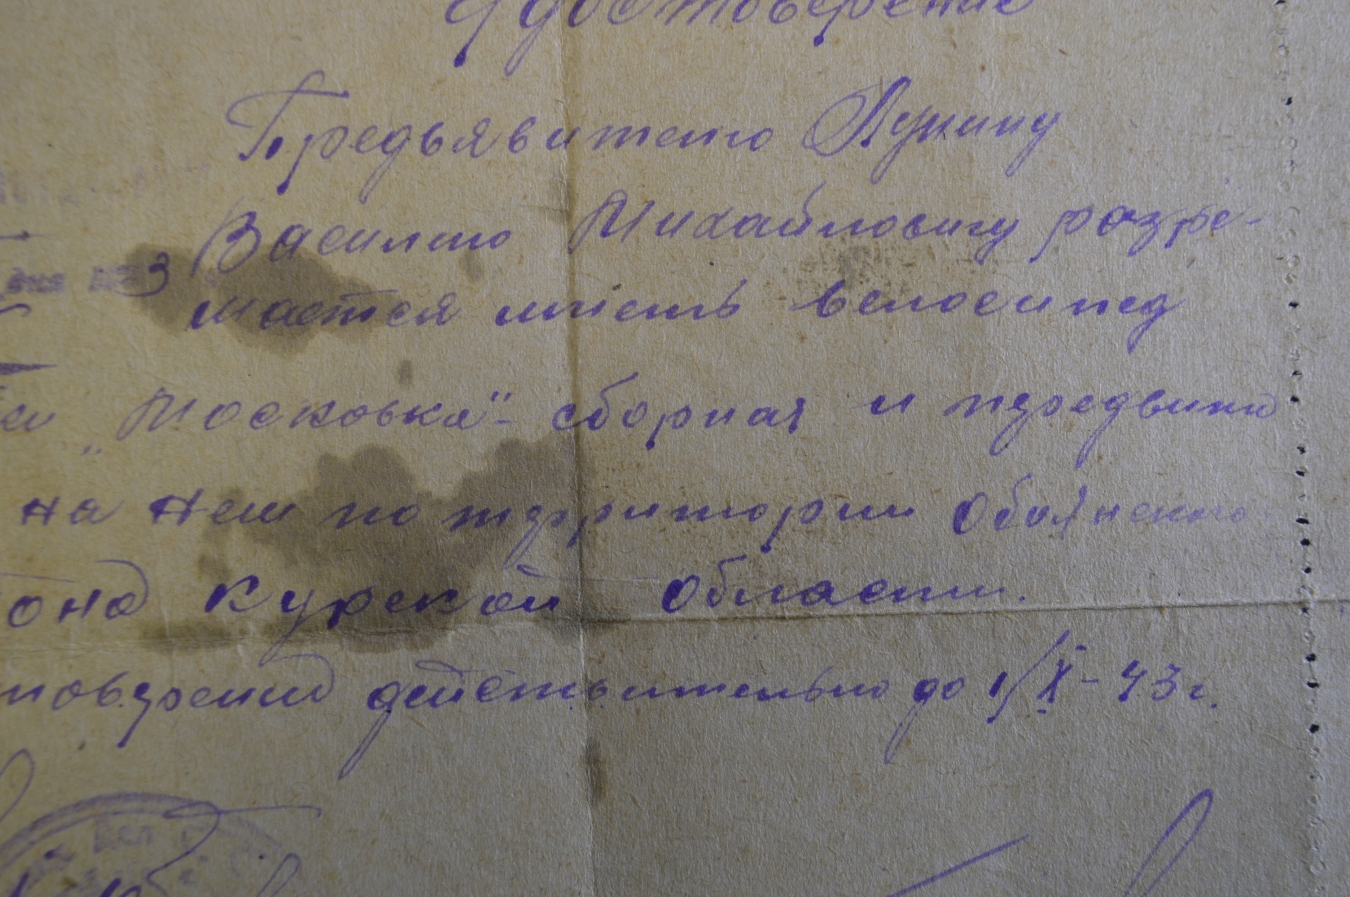 Удостоверение
Предъявителю Лукину
Василию Михайловичу разре-
шается иметь велосипед
"Московка" - сборная и передвиж
на нем по территории Обоянско
она Курской области.
товерение действительно до 1/X-43 г.